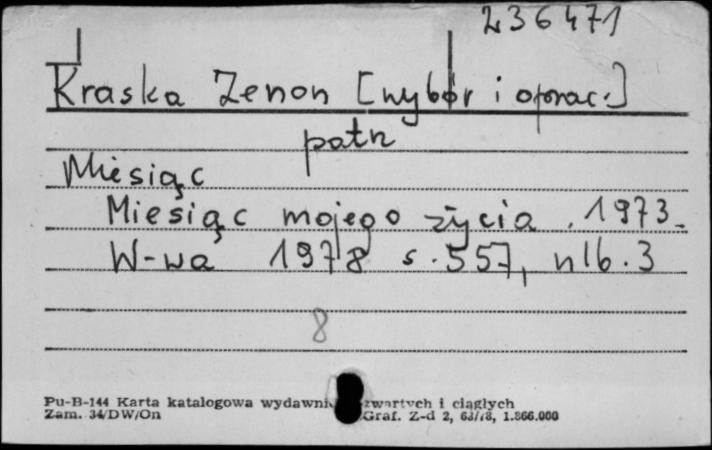 236471
Kraska Zenon [wybór i oprac.]
patrz
Miesiąc
Miesiąc mojego życia. 1973.
W-wa 1978 s. 557, nlb. 3
8
Pu-B-144 Karta katalogowa wydawni zwartych i ciągłych
Zam. 34/DW/On Graf. Z-d 2, 63/78, 1.866.000